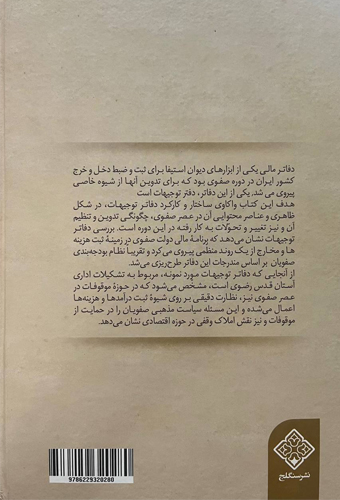 دفاتر مالی یکی از ابزارهای دیوان استیفا برای ثبت و ضبط دخل و خرج
کشور ایران در دوره صفوی بود که برای تدوین آنها از شیوه خاصی
پیروی می شد. یکی از این دفاتر، دفتر توجیهات است
هدف این کتاب واکاوی ساختار و کارکرد دفاتر توجیهات، در شکل
ظاهری و عناصر محتوایی آن در عصر صفوی، چگونگی تدوین و تنظیم
آن و نیز تغییر و تحولات به کار رفته در این دوره است. بررسی دفاتر
توجیهات نشان می‌دهد که برنامهٔ مالی دولت صفوی در زمینهٔ ثبت هزینه
ها و مخارج از یک روند منظمی پیروی می‌کرد و تقریبا نظام بودجه‌بندی
صفویان بر اساس مندرجات این دفاتر طرح‌ریزی می‌شد.
از آنجایی که دفاتر توجیهات مورد نمونه، مربوط به تشکیلات اداری
آستان قدس رضوی است، مشخص می‌شود که در حوزهٔ موقوفات در
عصر صفوی نیز، نظارت دقیقی بر روی شیوهٔ ثبت درآمدها و هزینه‌ها
اعمال می‌شده و این مسئله سیاست مذهبی صفویان را در حمایت از
موقوفات و نیز نقش املاک وقفی در حوزه اقتصادی نشان می‌دهد.
9786229320280
نشر سنگلج